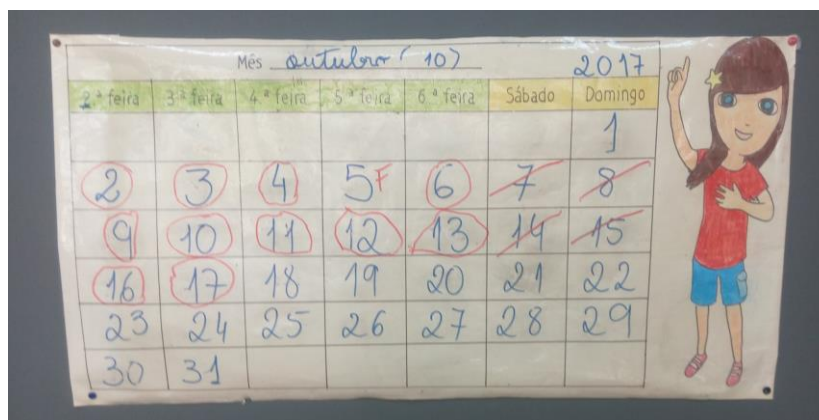 Mês outubro (10) 2017
2.ª feira 3.ª feira 4.ª feira 5.ª feira 6.ª feira Sábado Domingo
1
2 3 4 5 F 6 7 8
9 10 11 12 13 14 15
16 17 18 19 20 21 22
23 24 25 26 27 28 29
30 31